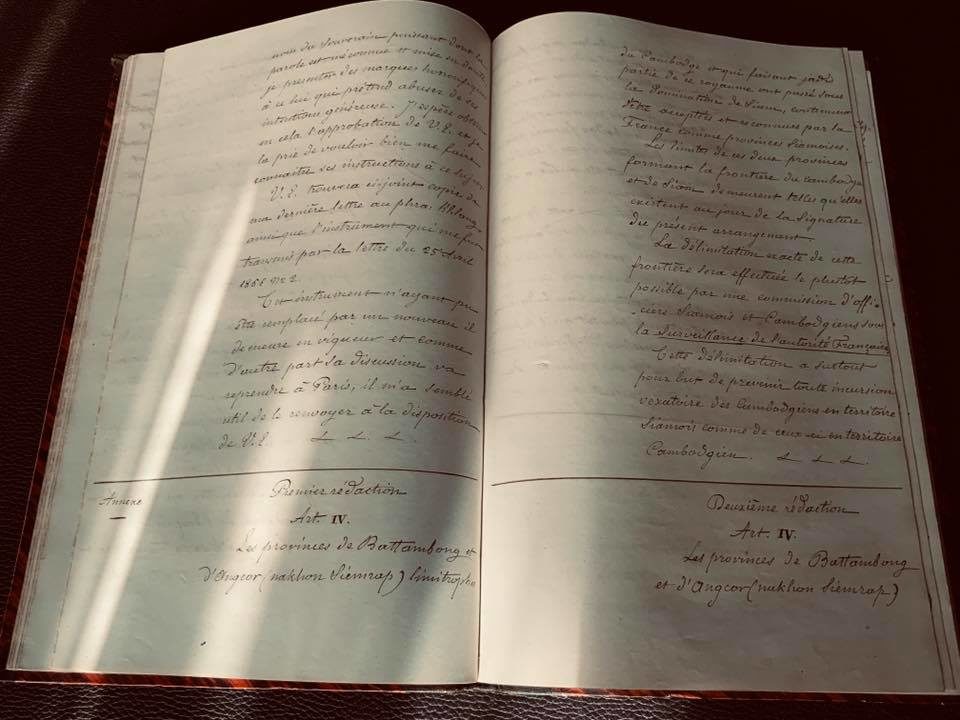 nom du Souverain puissant dont la
parole est méconnue et mise en doute
je présenter des marques honorifiques
à celui qui prétend abuser de ses
intentions généreuse. J'espère obtenir
en cela l'approbation de V. E. et je
la prie de vouloir bien me faire
connaître ses instructions à ce sujet.
V. E. trouvera ci-joint copie de
ma dernière lettre au phra. Khlang
ainsi que l'instrument qui me fut
transmis par la lettre du 25 Avril
1866 No 2.
Cet instrument n'ayant pu
être remplacé par un nouveau il
demeure en vigueur et comme
d'autre part sa discussion va
reprendre à Paris, il m'a semblé
util de le renvoyer à la disposition
de V. E.
Annexe
Premier rédaction
Art. IV.
Les provinces de Battambong et
d'Angcor (nakhon Siemrap) limitrophe
du Cambodge et qui faisant jadis
partie de ce royaume ont passé sous
la Domination de Siam, continuent
d'être acceptés et reconnues par la
France comme provinces Siamoises.
Les limites de ces deux provinces
formant la frontière du Cambodge
et de Siam demeurent telles qu'elles
existent au jour de la Signature
du présent arrangement.
La délimitation exacte de cette
frontière sera effectuée le plustot
possible par une commission d'offi-
ciers Siamois et Cambodgiens sous
la Surveillance de l'autorité Française
Cette délimitation a surtout
pour but de prévenir toute incursion
vexatoire des Cambodgiens en territoire
Siamois comme de ceux-ci en territoire
Cambodgien.
Deuxième rédaction
Art. IV.
Les provinces de Battambong
et d'Angcor (nakhon Siemrap)